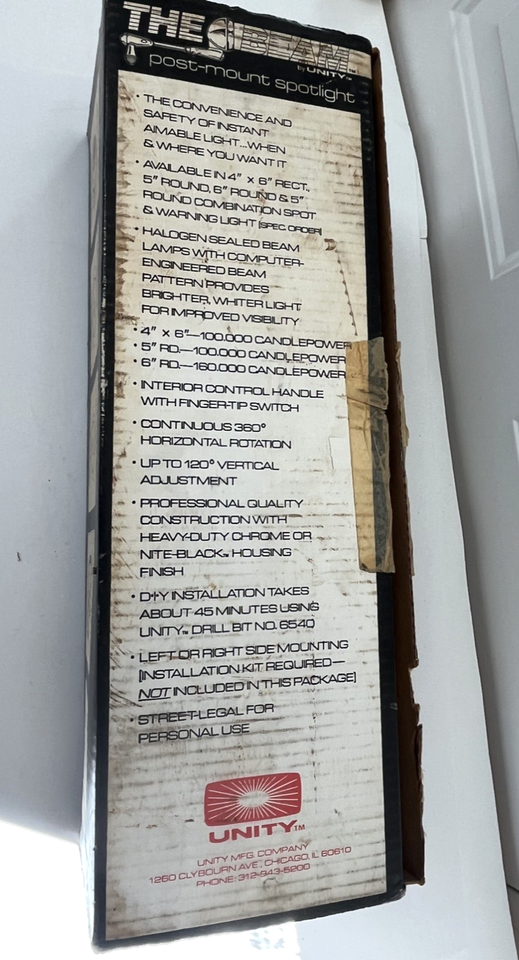 THE BEAM™
by UNITY™
post-mount spotlight
• THE CONVENIENCE AND
SAFETY OF INSTANT
AIMABLE LIGHT...WHEN
& WHERE YOU WANT IT
• AVAILABLE IN 4" X 6" RECT.,
5" ROUND, 6" ROUND & 5"
ROUND COMBINATION SPOT
& WARNING LIGHT (SPEC. ORDER)
• HALOGEN SEALED BEAM
LAMPS WITH COMPUTER-
ENGINEERED BEAM
PATTERN PROVIDES
BRIGHTER, WHITER LIGHT
FOR IMPROVED VISIBILITY
• 4" X 6"—100,000 CANDLEPOWER
• 5" RD.—100,000 CANDLEPOWER
• 6" RD.—160,000 CANDLEPOWER
• INTERIOR CONTROL HANDLE
WITH FINGER-TIP SWITCH
• CONTINUOUS 360°
HORIZONTAL ROTATION
• UP TO 120° VERTICAL
ADJUSTMENT
• PROFESSIONAL QUALITY
CONSTRUCTION WITH
HEAVY-DUTY CHROME OR
NITE-BLACK™ HOUSING
FINISH
• D-I-Y INSTALLATION TAKES
ABOUT 45 MINUTES USING
UNITY™ DRILL BIT NO. 6540
• LEFT OR RIGHT SIDE MOUNTING
(INSTALLATION KIT REQUIRED—
NOT INCLUDED IN THIS PACKAGE)
• STREET-LEGAL FOR
PERSONAL USE
UNITY™
UNITY MFG. COMPANY
1260 CLYBOURN AVE., CHICAGO, IL 60610
PHONE: 312-943-5200